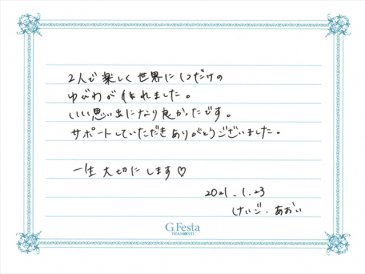 2人で楽しく世界に1つだけの
ゆびわが作れました。
いい思い出になり良かったです。
サポートしていただきありがとうございました。
一生大切にします♡
2021.1.23
けいご・あおい
G.Festa
DIAMOND